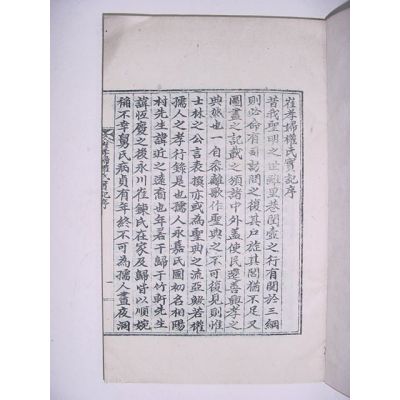 崔孝婦權氏實記序
昔我聖明之世雖里巷閨壼之行有關於三綱
則必命有司訪問之復其戶旌其閭猶不足又
圖畫之記載之頒諸中外盖使民遷善興孝之
典然也一自黍離歌作聖典之不可復見則惟
士林之公言表撰亦或為聖典之流亞若權
孺人之孝行錄是也孺人永嘉氏國初名相陽
村先生諱近之遠裔也年若干歸于竹軒先生
諱恒慶之後永川崔鍊氏在家及歸皆以順婉
稱不幸舅氏病貞有年終不可為孺人晝夜洞
孝婦權氏實記序
一